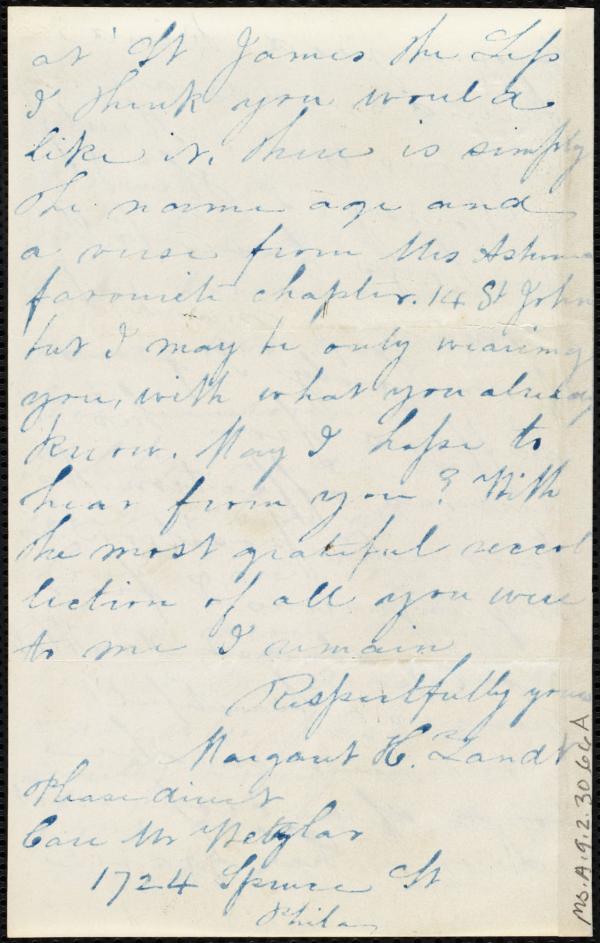 at St James the Less
I think you would
like it, there is simply
the name age and
a verse from Mrs
favourite chapter. 14 St John
but I may be only wearing
you, with what you already
know. May I hope to
hear from you? With
the most grateful recol
lection of all you were
to me I remain
Respectfully yours
Margaret H.
Please direct
Care Mr
1724 Spruce St
Phila
Ms.A.9.2.30 66A